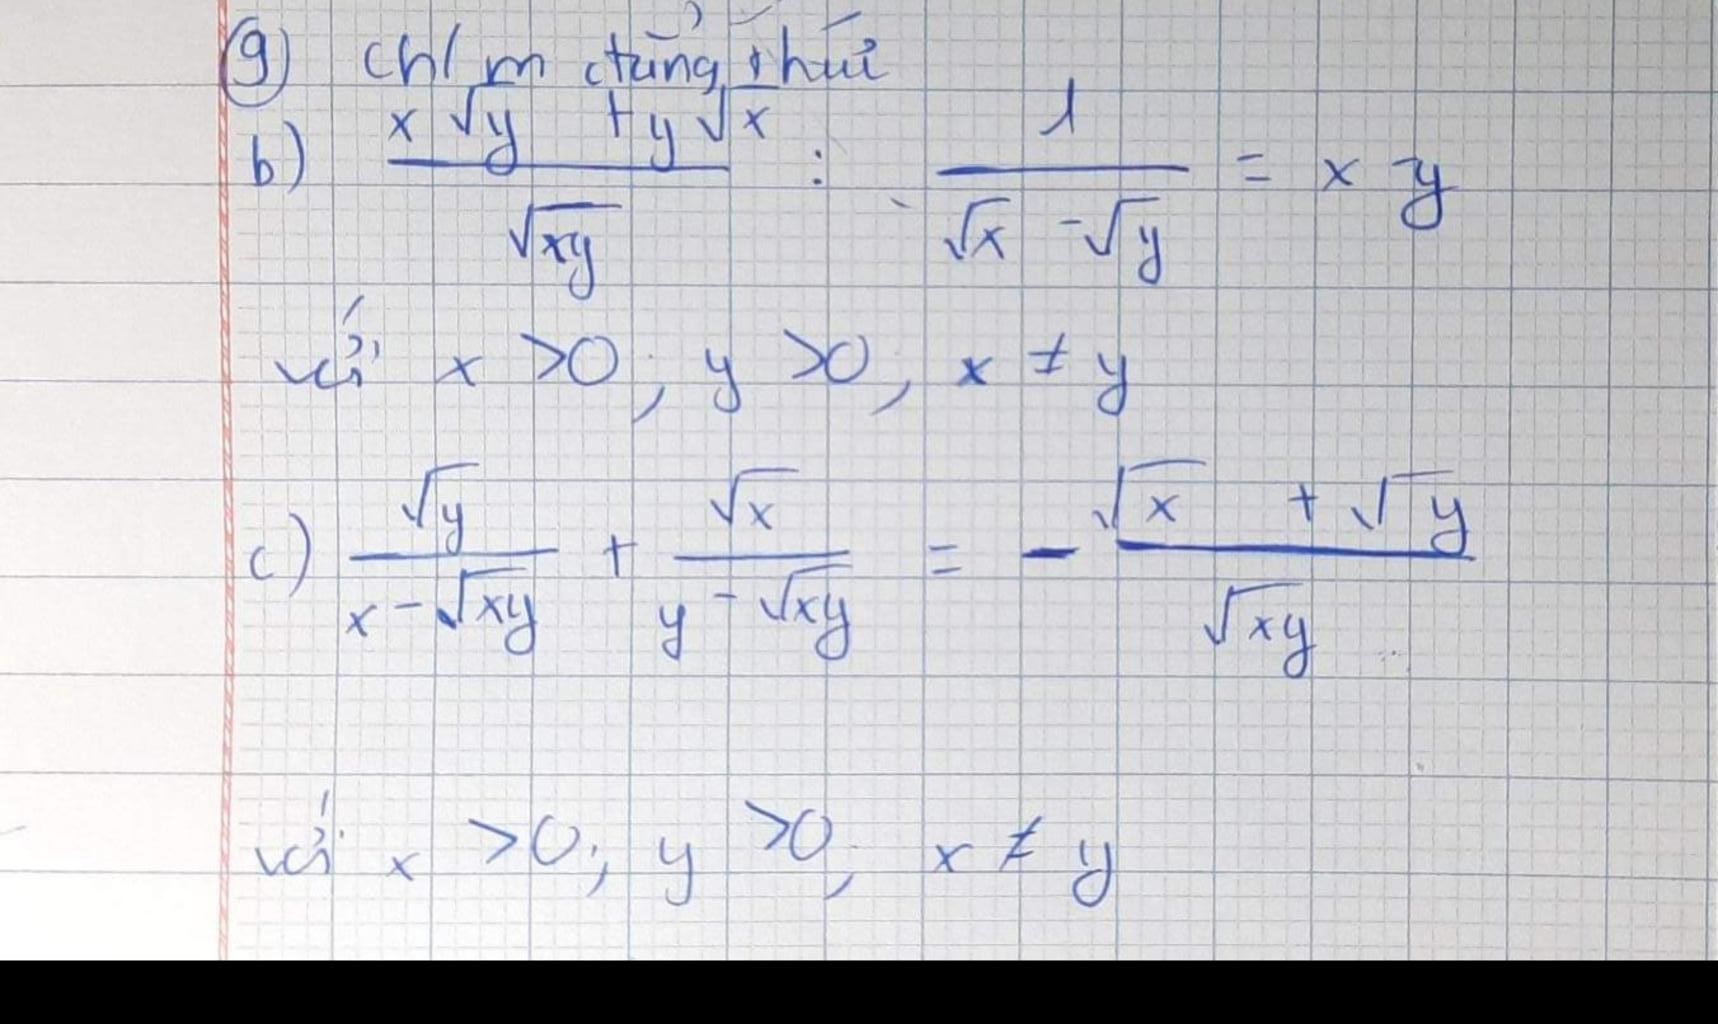 9) Ch/m đẳng thức
b) (x√y + y√x)/√xy : 1/(√x - √y) = x - y
với x > 0, y > 0, x ≠ y
c) √y/(x - √xy) + √x/(y - √xy) = - (√x + √y)/√xy
với x > 0; y > 0, x ≠ y